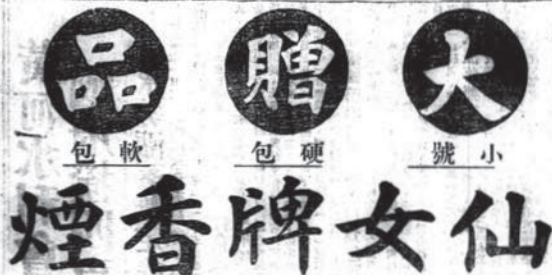 大贈品
小號 硬包 軟包
仙女牌香煙